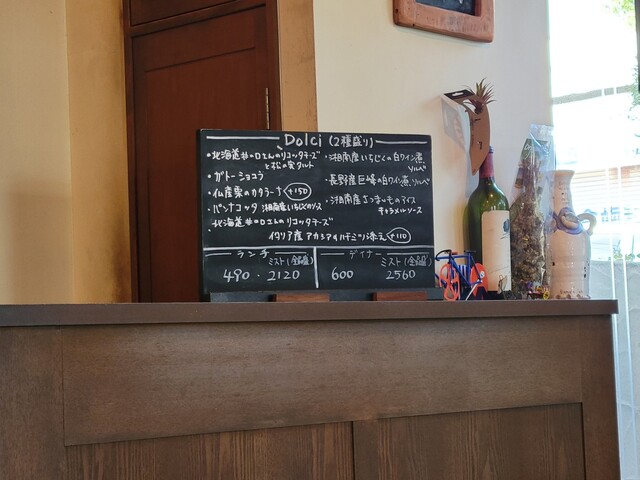 Dolci (2種盛り)
・北海道#Dさんのリコッタチーズ
と松の実タルト
・ガトーショコラ
・仏産栗のカタラーナ +150
・パンナコッタ 湘南産いちじくのソース
・北海道#Dさんのリコッタチーズ
イタリア産アカシアのハチミツ添え +110
・湘南産いちじくの白ワイン煮、
ソルベ
・長野産巨峰の白ワイン煮、ソルベ
・湘南産さつまいものアイス
キャラメルソース
ランチ
ミスト(全6種)
490・2120
ディナー
ミスト(全6種)
600 2560